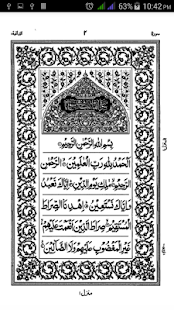 10:42 PM
63%
٢
بِسْمِ اللّٰهِ الرَّحْمٰنِ الرَّحِيْمِ
اَلْحَمْدُ لِلّٰهِ رَبِّ الْعٰلَمِيْنَ الرَّحْمٰنِ
الرَّحِيْمِ مٰلِكِ يَوْمِ الدِّيْنِ اِيَّاكَ نَعْبُدُ
وَاِيَّاكَ نَسْتَعِيْنُ اِهْدِنَا الصِّرَاطَ
الْمُسْتَقِيْمَ صِرَاطَ الَّذِيْنَ اَنْعَمْتَ عَلَيْهِمْ
غَيْرِ الْمَغْضُوْبِ عَلَيْهِمْ وَلَا الضَّآلِّيْنَ
منزل ١